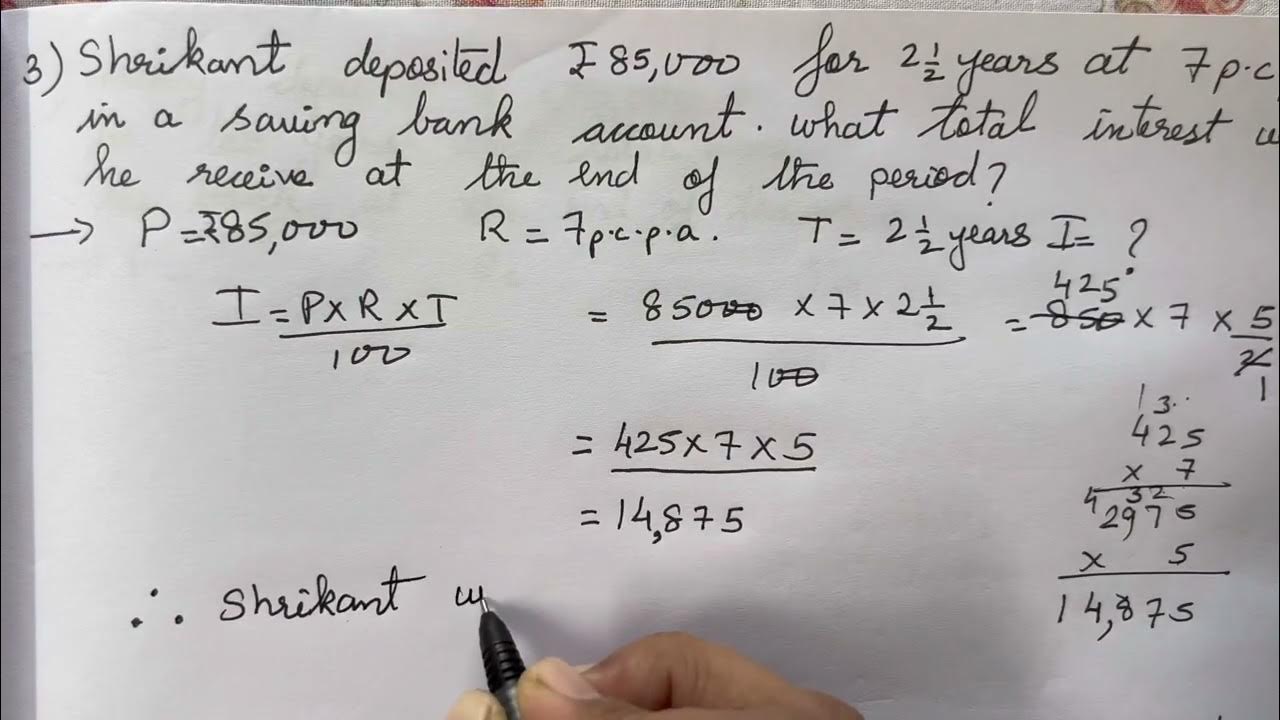 3) Shrikant deposited ₹85,000 for 2 1/2 years at 7 p.c
in a saving bank account. what total interest w
he receive at the end of the period?
→ P = ₹85,000 R = 7p.c.p.a. T = 2 1/2 years I = ?
I = P×R×T / 100 = 85000 × 7 × 2 1/2 / 100 = 850 × 7 × 5 / 2
425
1
= 425×7×5
= 14,875
1 3
425
× 7
4 3 2
2975
× 5
14,875
∴ Shrikant w